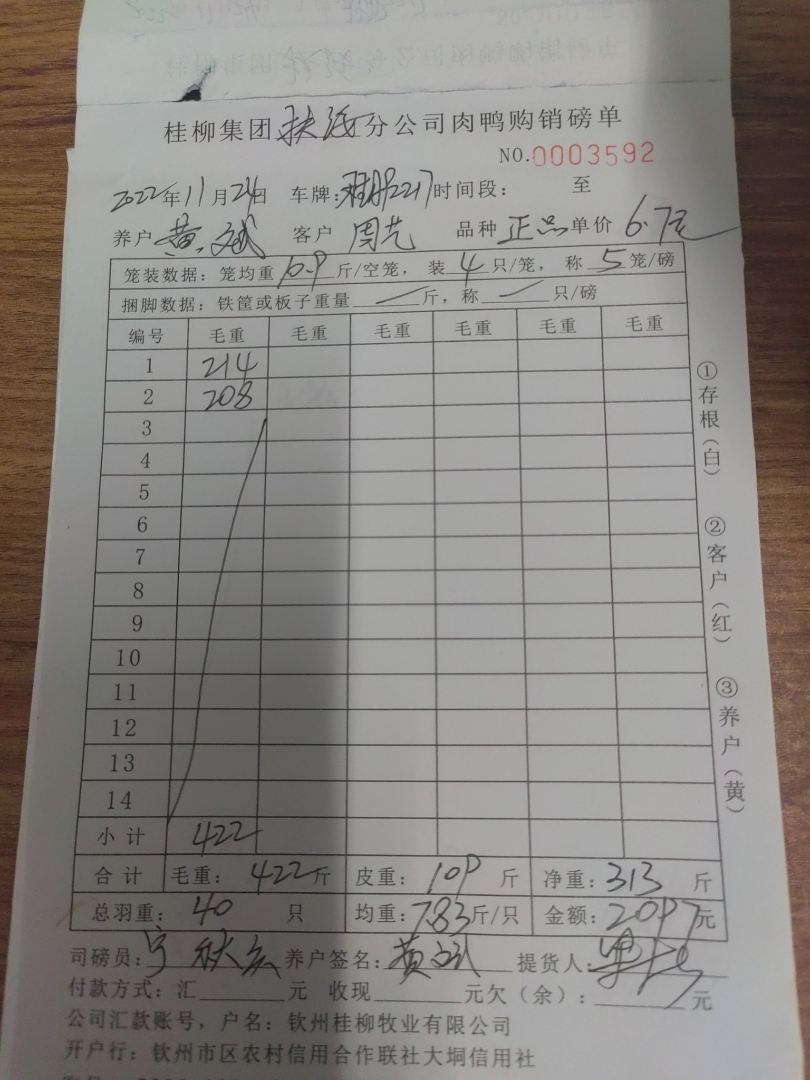 桂柳集团扶海分公司肉鸭购销磅单
NO.0003592
2022年11月24日 车牌:桂 2217时间段: 至
养户黄斌 客户周芒 品种正品单价6.7元
笼装数据:笼均重10.9斤/空笼,装4只/笼,称5笼/磅
捆脚数据:铁筐或板子重量 斤,称 只/磅
编号 毛重 毛重 毛重 毛重 毛重 毛重
1 214
2 208
3
4
5
6
7
8
9
10
11
12
13
14
小计 422
合计 毛重:422斤 皮重:109斤 净重:313斤
总羽重:40只 均重:7.83斤/只 金额:2097元
司磅员:宁秋 养户签名:黄斌 提货人:
付款方式:汇 元 收现 元欠(余): 元
公司汇款账号,户名:钦州桂柳牧业有限公司
开户行:钦州市区农村信用合作联社大垌信用社
①存根(白) ②客户(红) ③养户(黄)